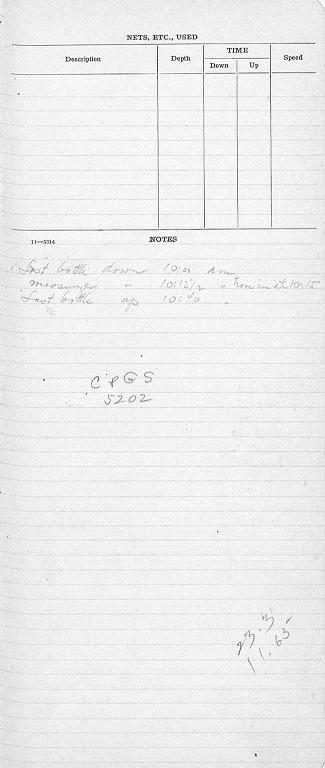 NETS, ETC., USED
Description Depth TIME Speed
Down Up
11—5314 NOTES
Last bottle down 10:01 am
messenger " 10:13½ " in at 10:15
Last bottle up 10:40 "
C P G S
5202
23.3
11.65